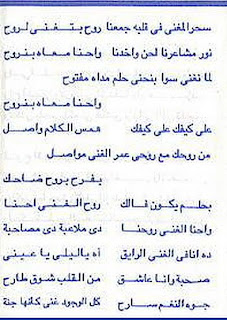 سحر المغنى فى قلبه جمعنا روح بتتغنى لروح
نور مشاعرنا لحن واخدنا واحنا معاه بنروح
لما نغنى سوا بنحنى حلم مداه مفتوح
واحنا معاه بنروح
على كيفك على كيفك همس الكلام واصل
من روحك مع روحى عمر الغنى مواصل
بفرح بروح ضاحك
بحلم يكون قالك روح الغنى احنا
واحنا الغنى روحنا دى ملاعبة دى مصاحبة
ده انا فى الغنى الرايق أه ياليلى يا عينى
صحبة وانا عاشق من القلب شوق طارح
جوه النغم سارح كل الوجود غنى كانها جنة